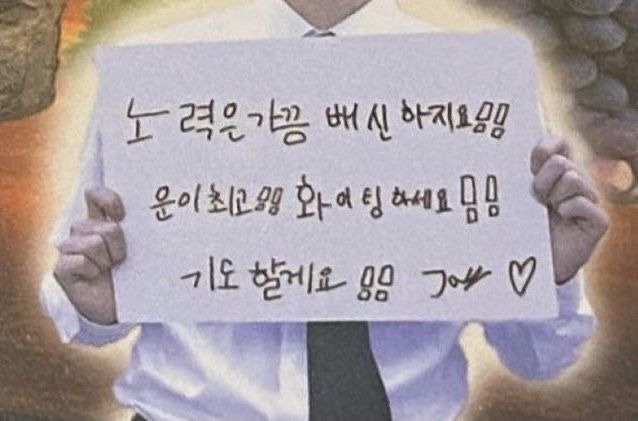 노력은 가끔 배신 하지요!!!!
운이 최고!!!! 화이팅 하세요!!!!
기도 할게요!!!! ♡